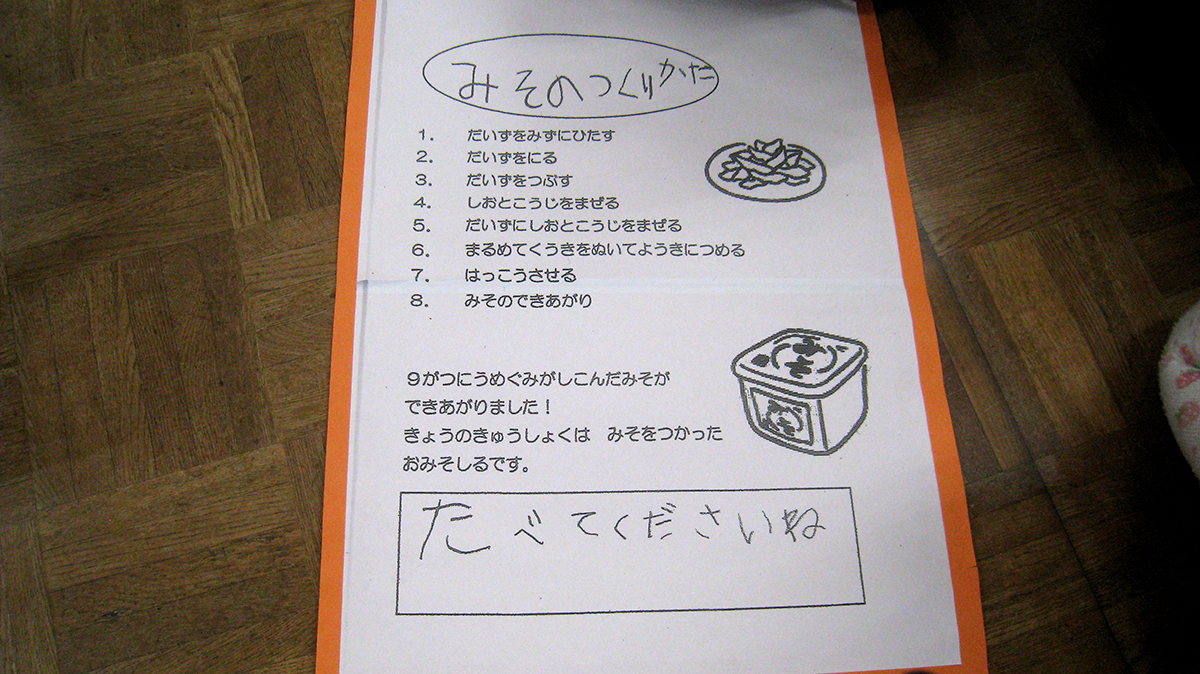 みそのつくりかた
1. だいずをみずにひたす
2. だいずをにる
3. だいずをつぶす
4. しおとこうじをまぜる
5. だいずにしおとこうじをまぜる
6. まるめてくうきをぬいてようきにつめる
7. はっこうさせる
8. みそのできあがり
9がつにうめぐみがしこんだみそが
できあがりました！
きょうのきゅうしょくは　みそをつかった
おみそしるです。
たべてくださいね